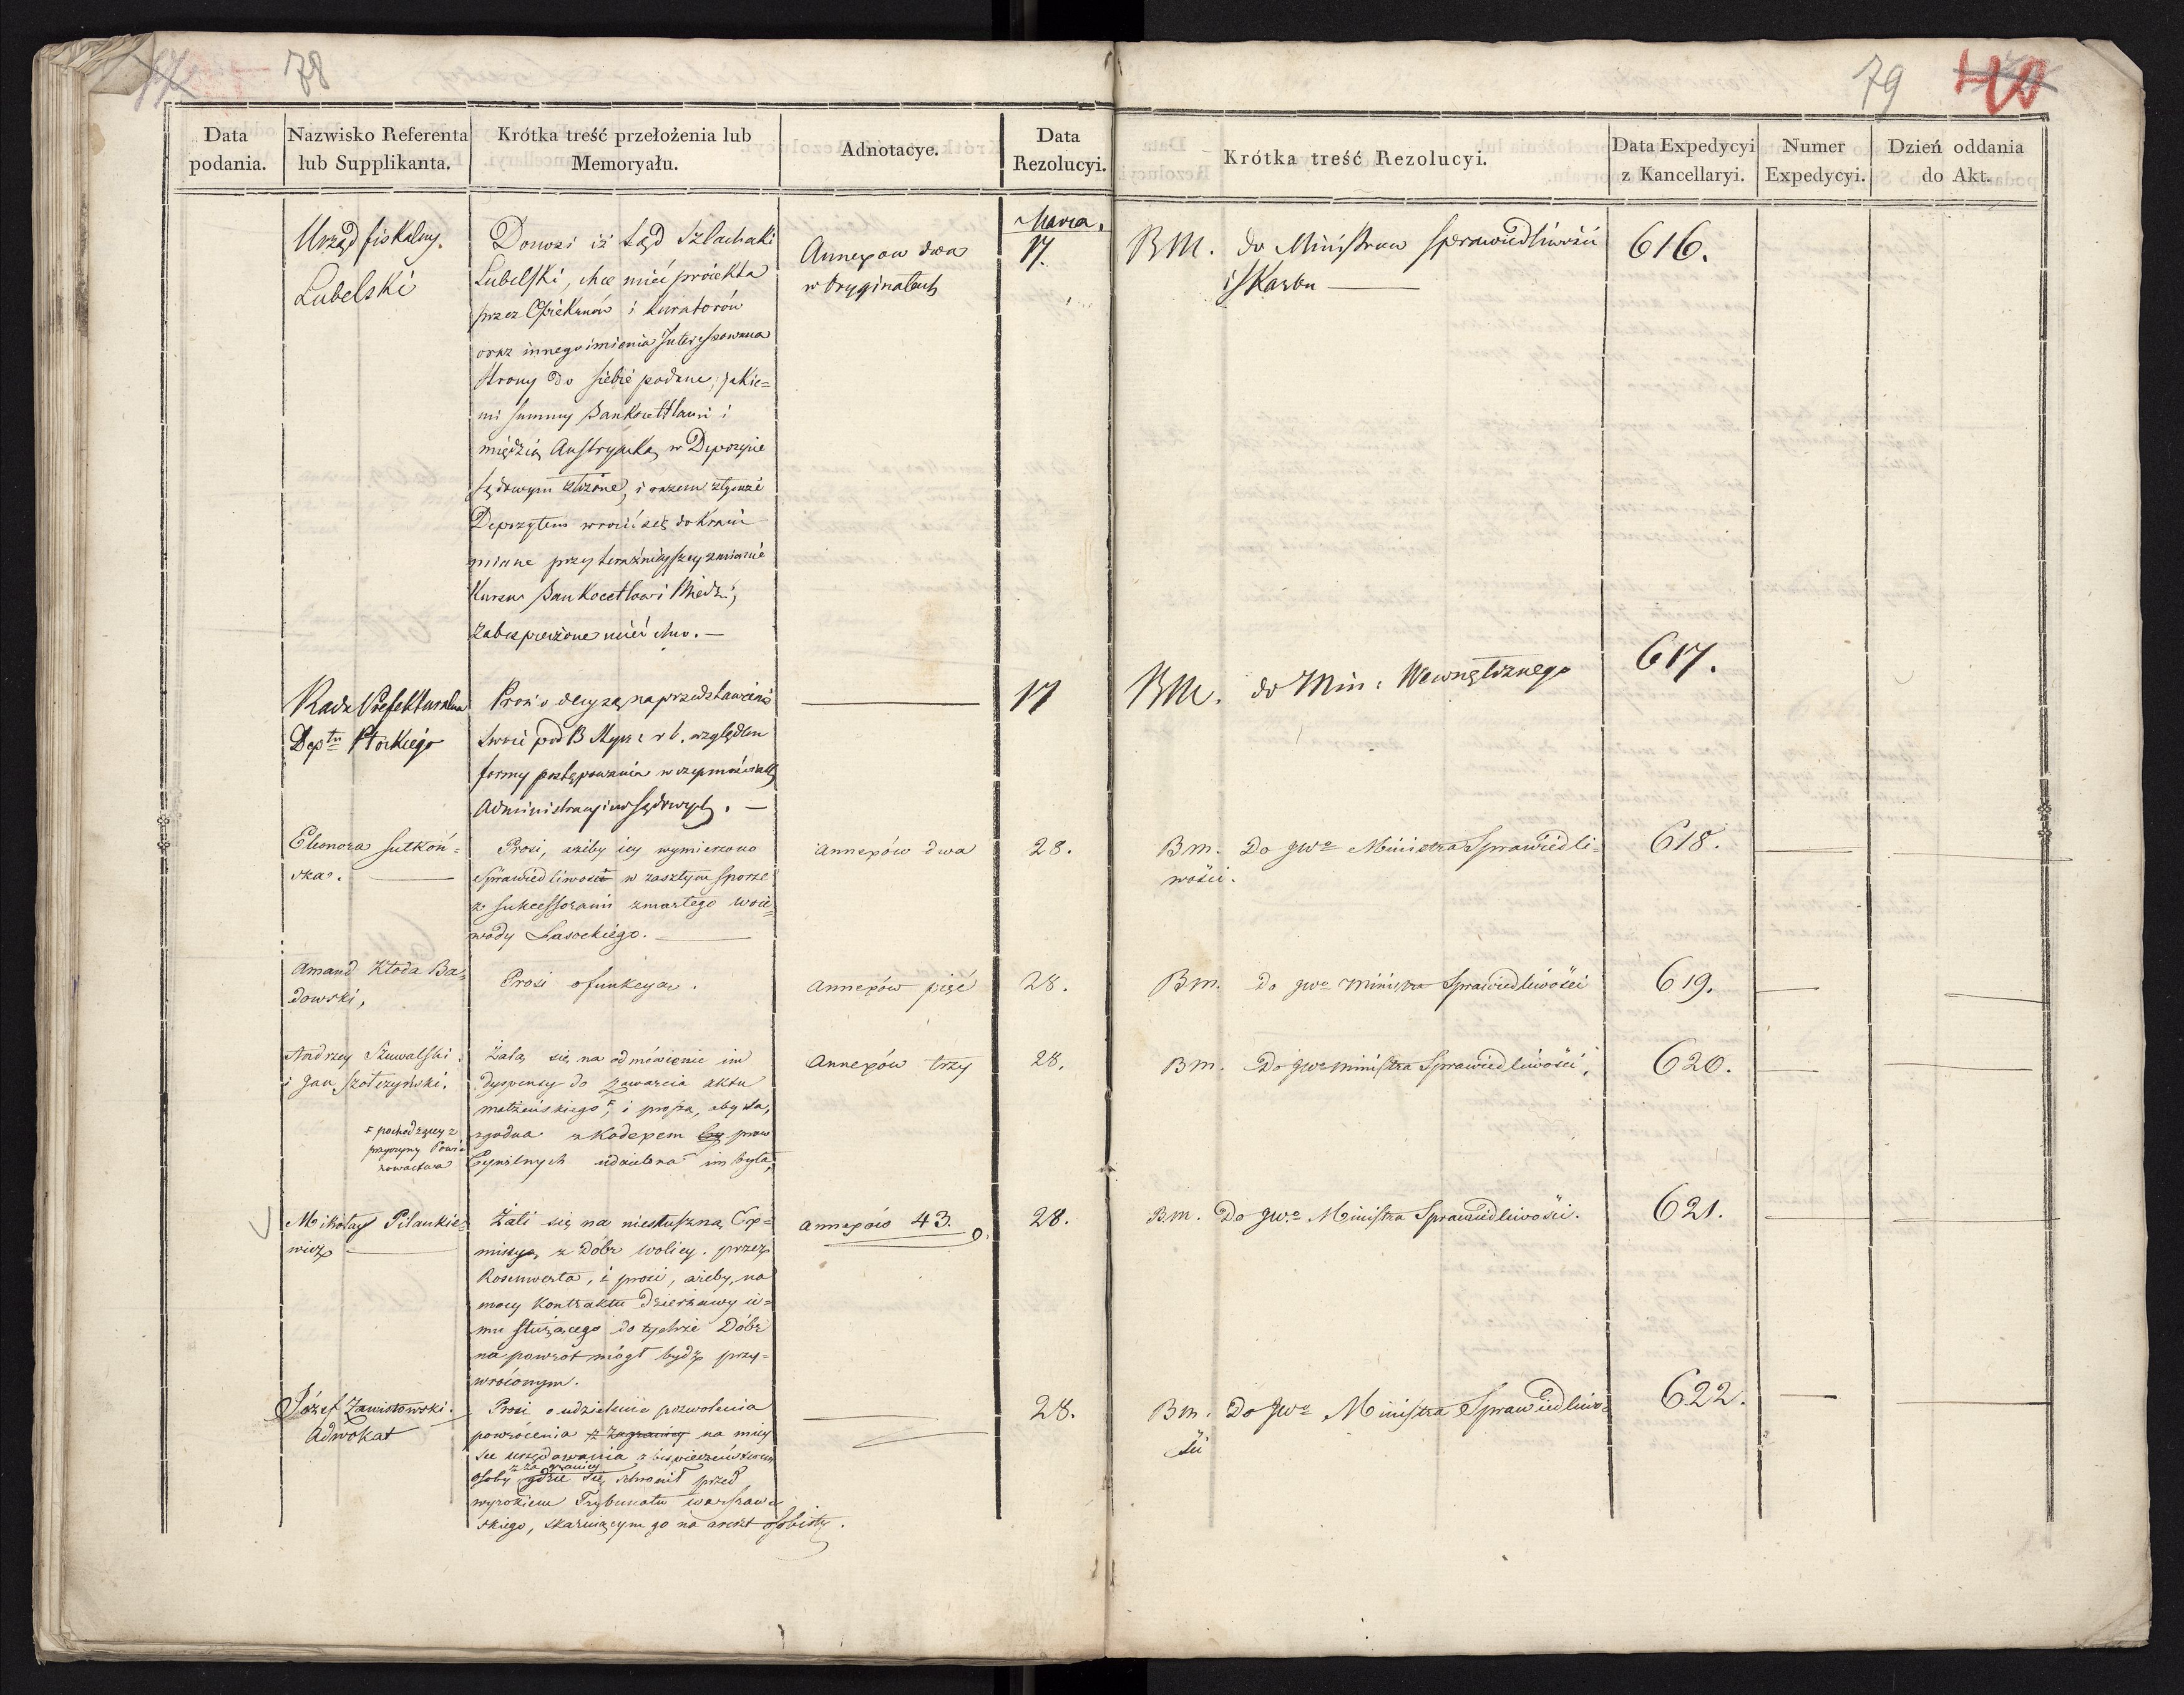 78
79
40
Data podania.
Nazwisko Referenta lub Supplikanta.
Krótka treść przełożenia lub Memoryału.
Adnotacye.
Data Rezolucyi.
Krótka treść Rezolucyi.
Data Expedycyi z Kancellaryi.
Numer Expedycyi.
Dzień oddania do Akt.
Urząd fiskalny
Lubelski
Donosi iż Sąd Szlachecki
Lubelski, chce mieć proiekta
przez Opiekunów i Kuratorów
oraz innego imienia Interessowane
Strony do siebie podane, jakie-
mi summy Bankocetlami i
miedzią Austryacką w Depozycie
Sądowym złożone, i razem z tymże
Depozytem wrócić się do Kraiu
miane przy teraźnieyszey zmianie
Kursu Bankocetlów i Miedzi,
zabespieczone mieć chce. —
Annexow dwa
w Oryginałach
Marca.
17.
BM. do Ministrow Sprawiedliwości
i Skarbu —
616.
Rada Prefekturalna
Deptu Płockiego
Prosi o decyzą na przedstawienie
swoie pod B Mca r b. względem
formy postępowania w czynnościach
Administracyino Sądowych. —
17
BM. do Min: Wewnętrznego
617.
Eleonora Sutkoń-
ska. —
Prosi, ażeby iey wymierzono
Sprawiedliwość w zaszłym sporze
z sukcessorami zmarłego woie-
wody Lasockiego. —
Annexów dwa
28.
Bm. Do Jwo Ministra Sprawiedli-
wości.
618.
Amand Kłoda Ba-
dowski,
Prosi o funkcyą.
Annexów pięć
28.
Bm. Do Jwo Ministra Sprawiedliwości
619.
Andrzey Szuwalski
i Jan Szołczyński.
Żalą się na odmówienie im
dyspensy do zawarcia aktu
małżeńskiego, i proszą, aby ta,
zgodna z Kodexem praw
Cywilnych udzielona im była,
pochodzącey z
przyczyny Powi-
nowactwa
Annexów trzy
28.
Bm. Do Jwo Ministra Sprawiedliwości,
620.
Mikołay Pilankie-
wicz —
Żali się na niesłuszną Ex-
missyą z Dóbr Wolicy. przez
Rosenwerta, i prosi, ażeby, na
mocy Kontraktu Dzierżawy ie-
mu służącego do tychże Dóbr
na powrót mógł bydź przy-
wróconym.
Annexów 43.
28.
B.m. Do Jwo Ministra Sprawiedliwości.
621.
Józef Zawistowski.
Adwokat
Prosi o udzielenie pozwolenia
powrócenia z zagranicy na miey
sce urzędowania z bespieczeństwem
osoby z za granicy gdzie się schronił przed
wyrokiem Trybunału warszaw
skiego, skazuiącym go na areszt osobisty.
28.
Bm. Do Jwo Ministra Sprawiedliwo-
ści
622.